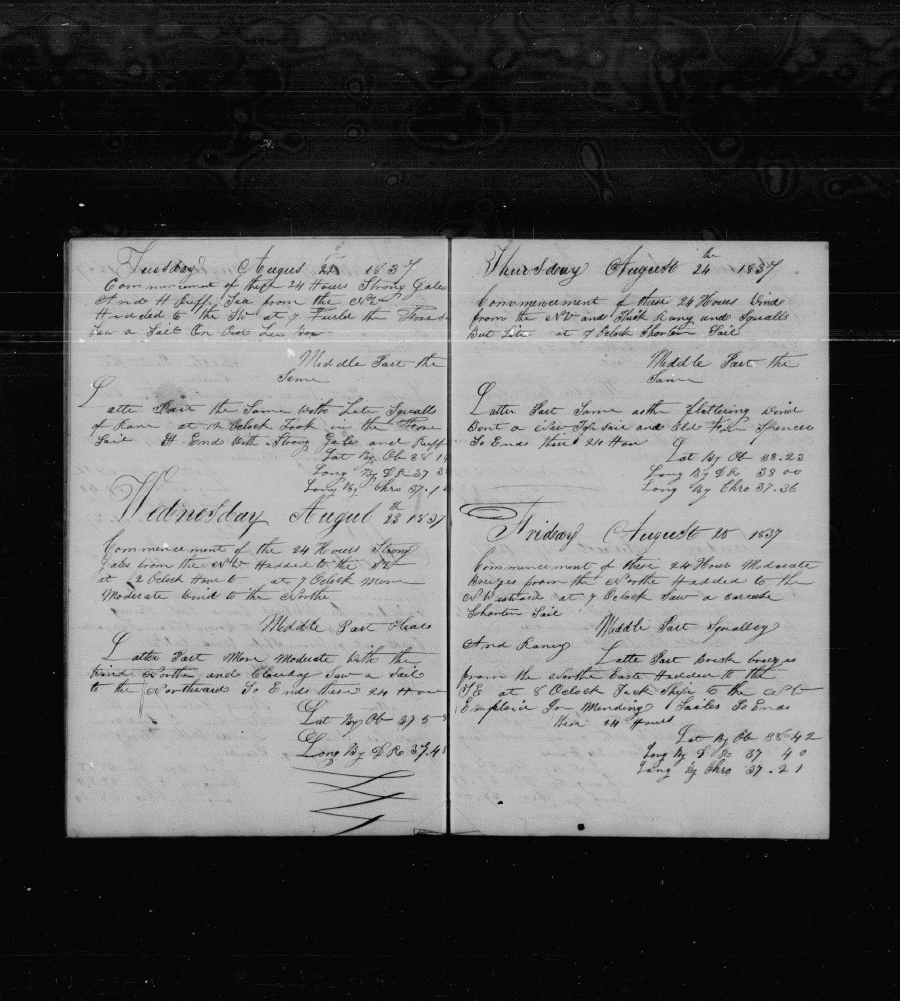 Tuesday August 22 1837
Commencment of these 24 Hours Strong Gales
And H Ruff Sea from the NW
Hadded to the SW at 7 Fueld the Fores
Saw a Sail On Our Lee
Meddle Part the
Seme
Latte Part the Same With Lite Squalls
of Rane at 12 Oclock Took in the Fore
Sail & Ends With Strong Gales and Ruff
Lat By Ob 38 14
Long By D R 37 3
Long By Chro 37.1
Wednesday Augul 23 th 1837
Commencement of the 24 Hours Strong
Gales from the NW Hadded to the SW
at 2 Oclock Hove to at 7 Oclock More
Moderate Wind to the Northe
Meddle Part
Latter Part More Moderate With the
Wind Northe and Clouday Saw a Sail
to the Northward So Ends these 24 Hour
Lat By Ob 37.5
Long By D R 37.48
Thursday August 24 th 1837
Commencement of these 24 Hours Wind
from the NW and Thick Rany and Squalls
But Lite at 7 Oclock Shorten Sail
Meddle Part the
Same
Latter Part Same with flattering Wind
Bent a New Top sail and Old For Spencer
So Ends these 24 Hou
Lat By Ob 38.23
Long By D R 38 00
Long By Chro 37.36
Friday August 25 1837
Commencement of these 24 Hours Moderate
Breezes from the Northe Hadded to the
NWestward at 7 Oclock Saw a
Shorten Sail
Meddle Part Squalley
And Raney
Latte Part Brisk breezes
from the Northe Easte Hadded to the
SE at 8 Oclock Tack Ship to the NW
Emploid In Mending Sailes So Ends
these 24 Hours
Lat By Ob 38.42
Long By D R 37 40
Long By Chro 37.21